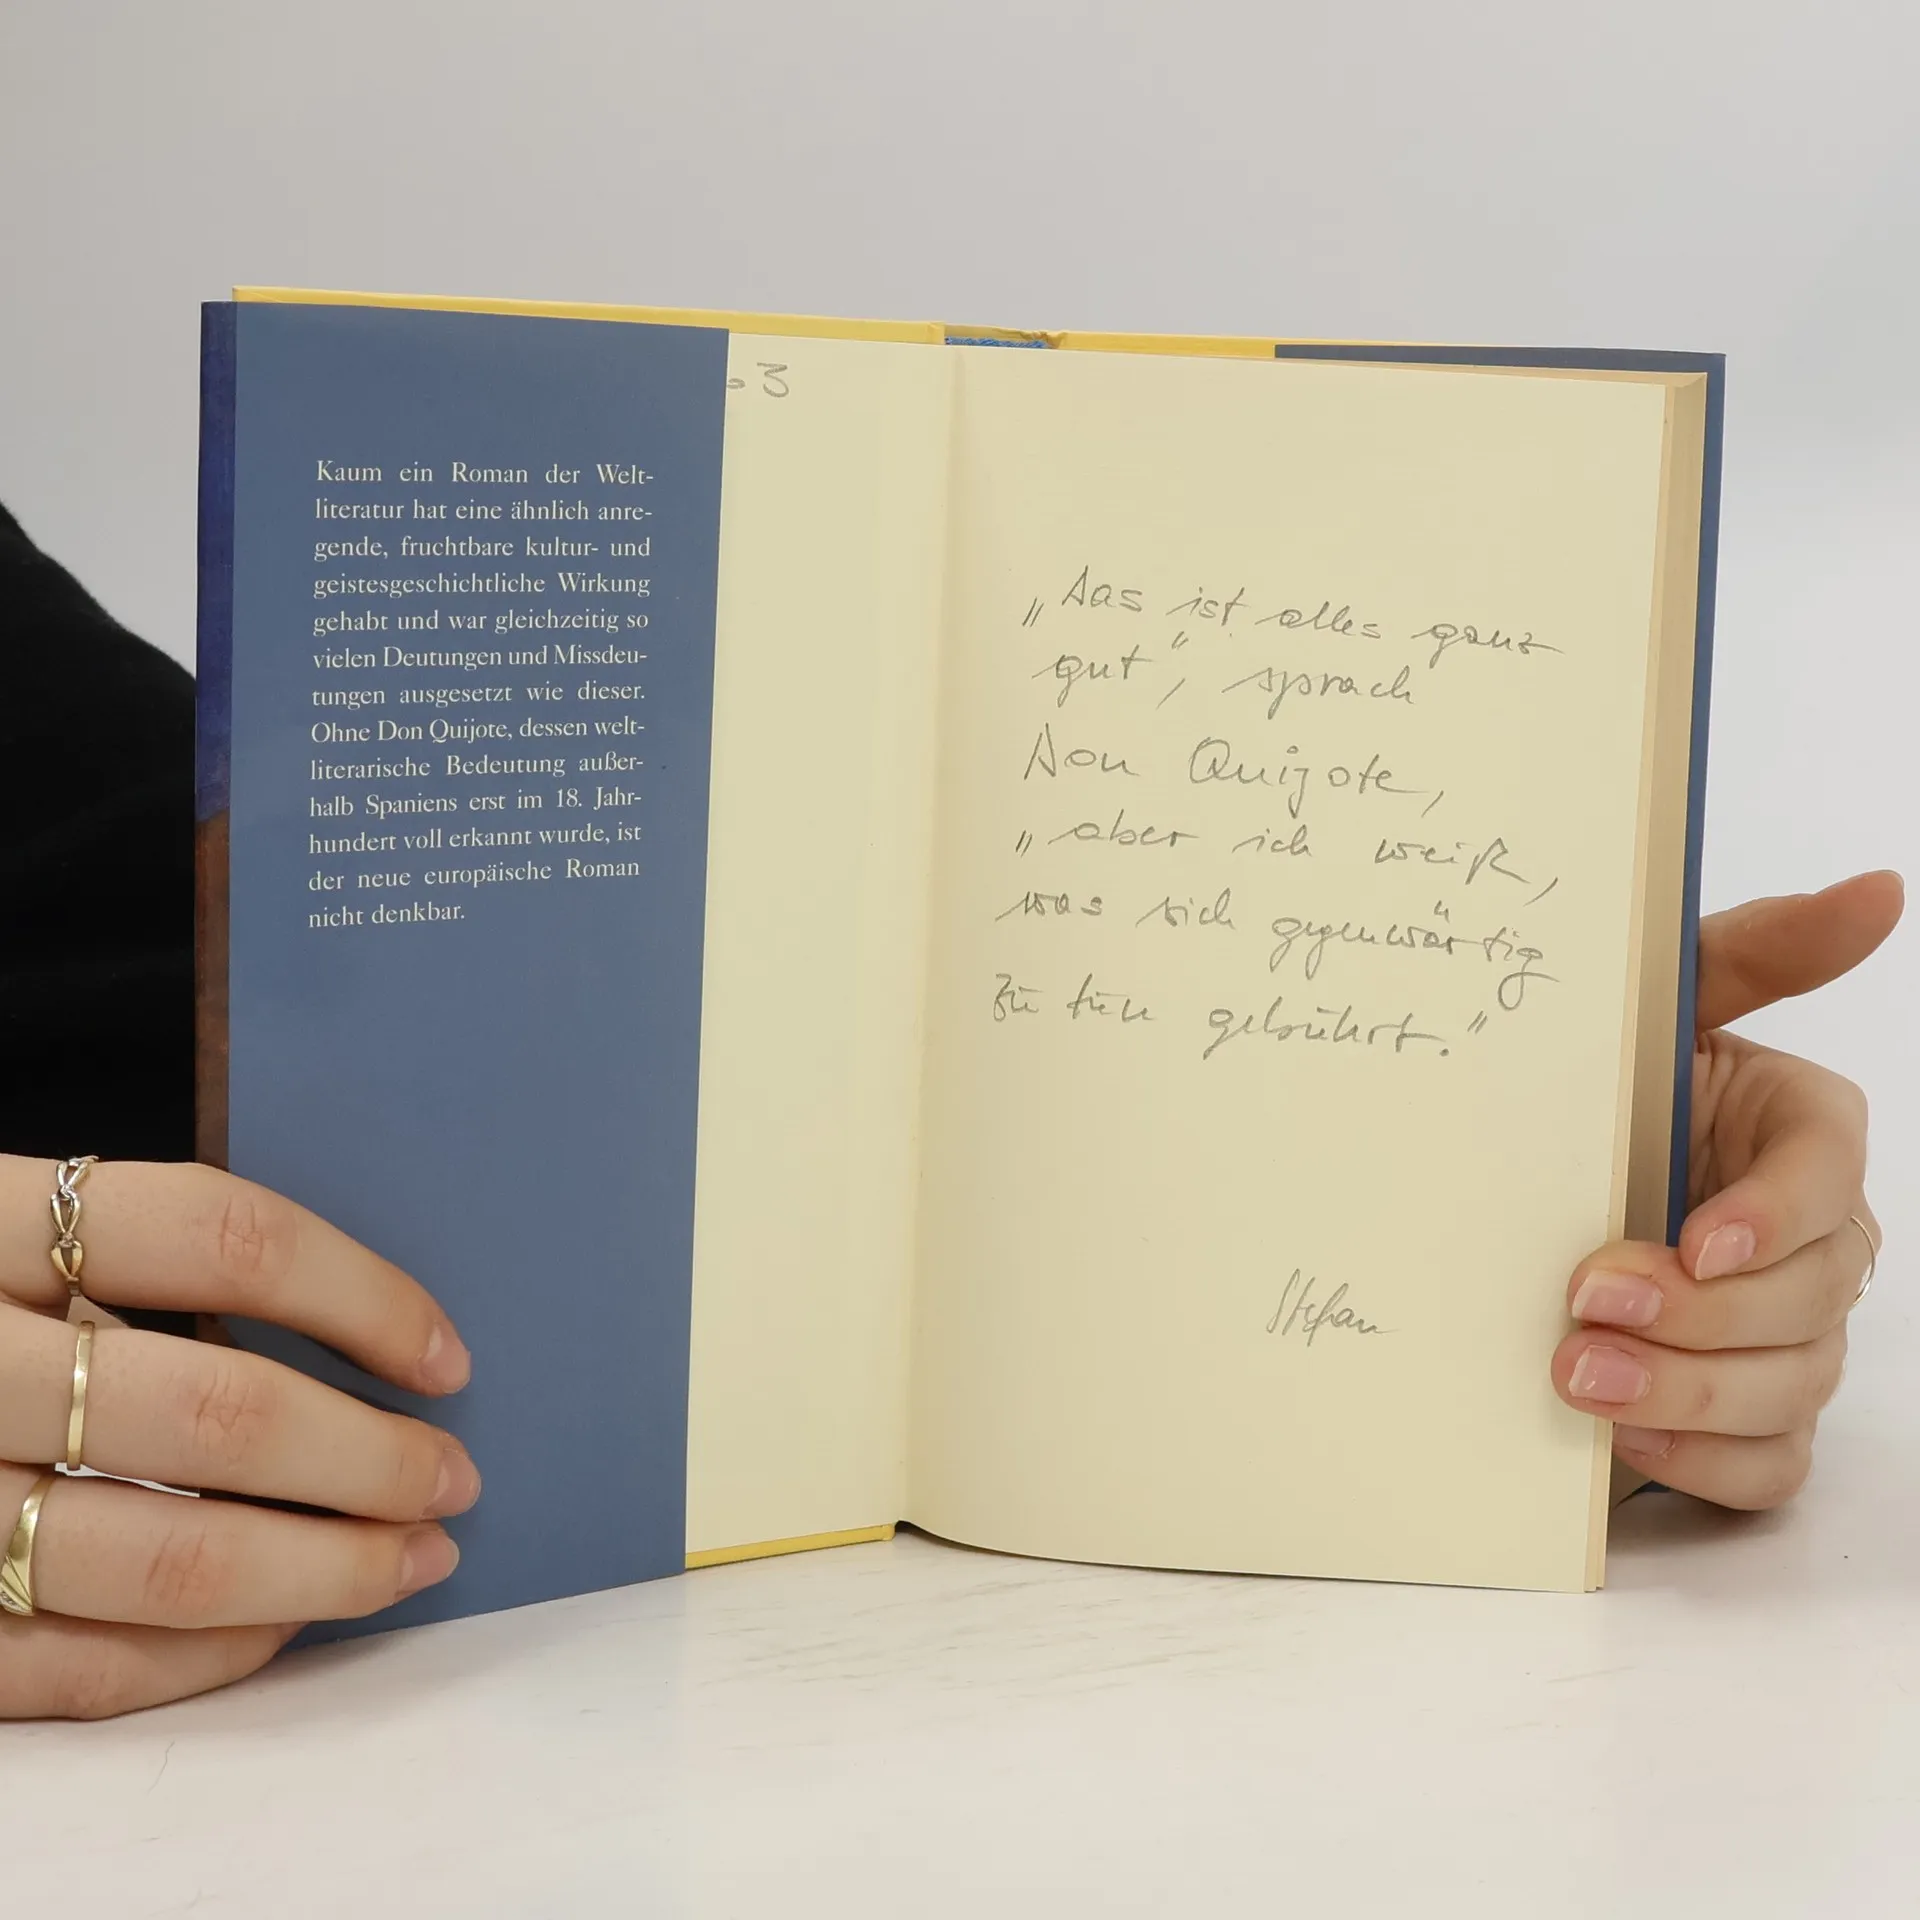 Kaum ein Roman der Welt-
literatur hat eine ähnlich anre-
gende, fruchtbare kultur- und
geistesgeschichtliche Wirkung
gehabt und war gleichzeitig so
vielen Deutungen und Missdeu-
tungen ausgesetzt wie dieser.
Ohne Don Quijote, dessen welt-
literarische Bedeutung außer-
halb Spaniens erst im 18. Jahr-
hundert voll erkannt wurde, ist
der neue europäische Roman
nicht denkbar.
3
„Das ist alles ganz
gut“, sprach
Don Quijote,
„aber ich weiß,
was sich gegenwärtig
zu tun gebührt.“
Stefan